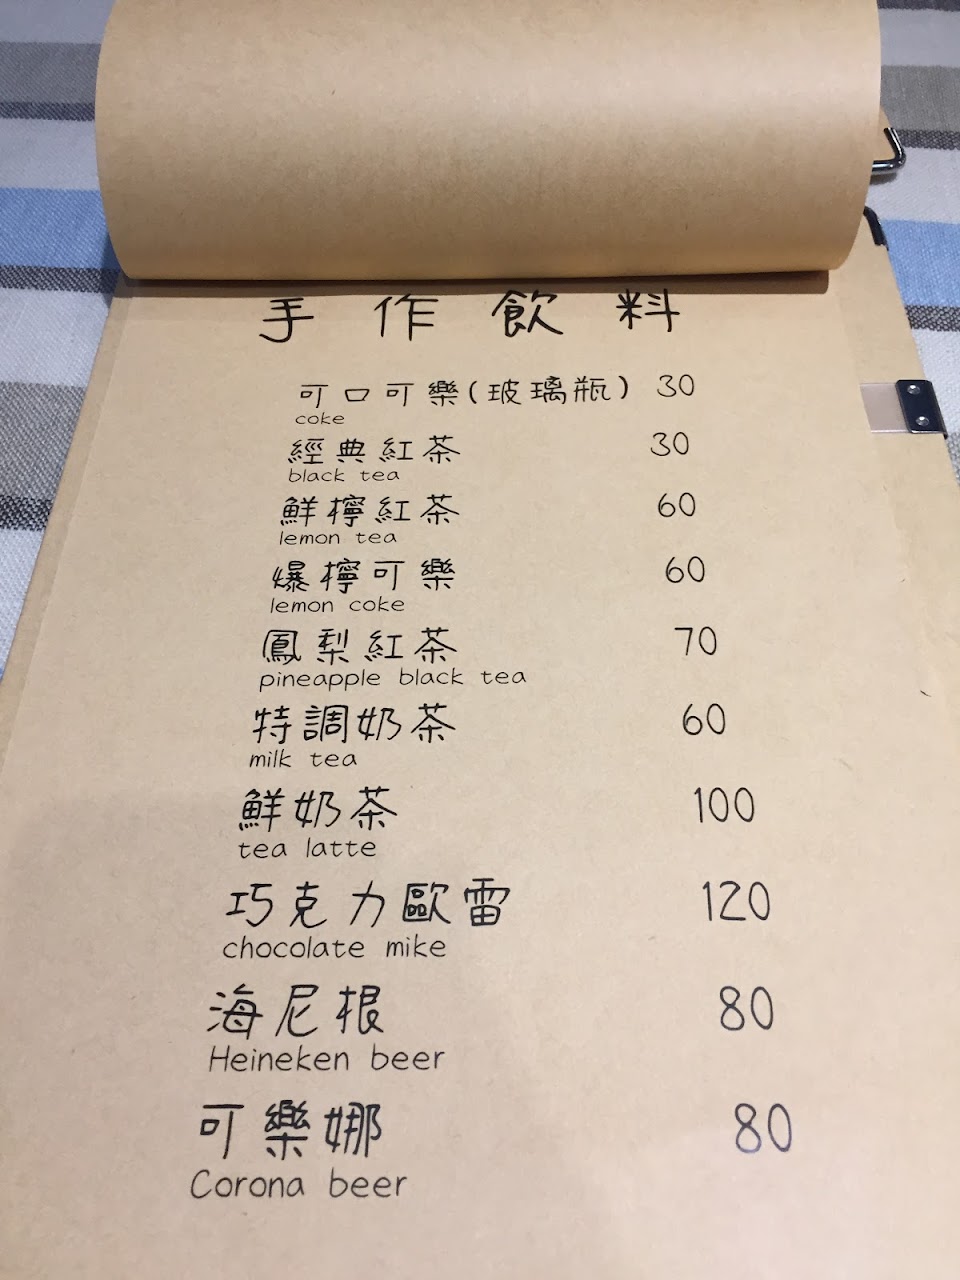 手作飲料
可口可樂(玻璃瓶) 30
coke
經典紅茶 30
black tea
鮮檸紅茶 60
lemon tea
爆檸可樂 60
lemon coke
鳳梨紅茶 70
pineapple black tea
特調奶茶 60
milk tea
鮮奶茶 100
tea latte
巧克力歐雷 120
chocolate mike
海尼根 80
Heineken beer
可樂娜 80
Corona beer